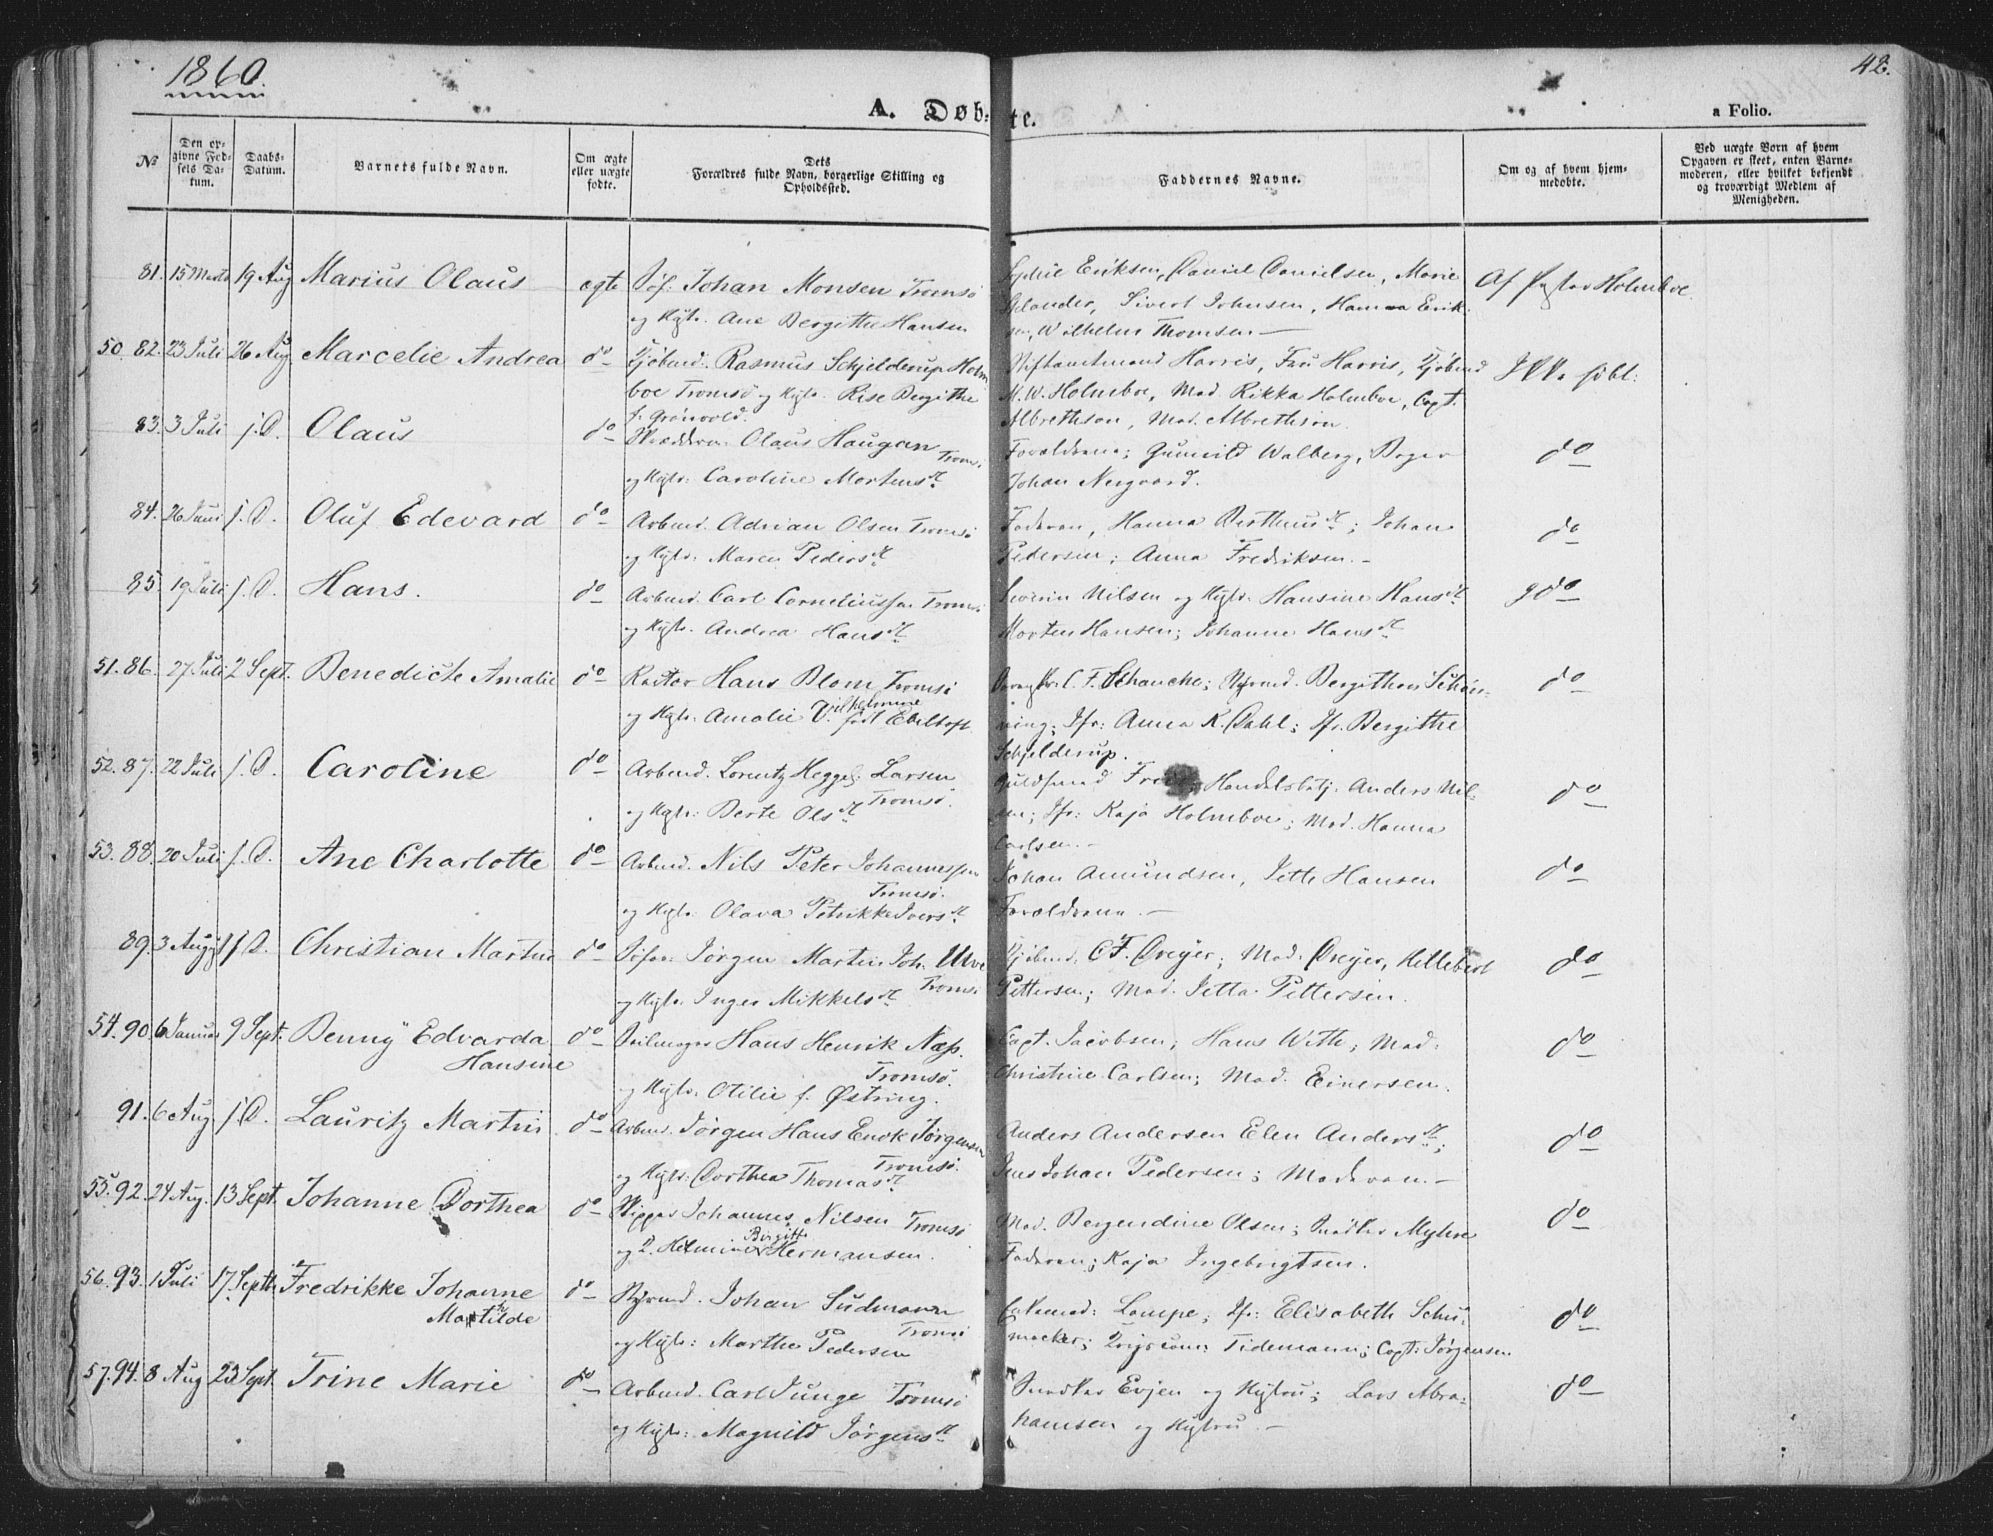 1860.
42.
A. Døb:
te.
a Folio.
№
Den opgivne Fødsels Datum.
Daabs-Datum.
Barnets fulde Navn.
Om ægte eller uægte fødte.
Dets Forældres fulde Navn, borgerlige Stilling og Opholdssted.
Faddernes Navne.
Om og af hvem hjemmedøbte.
Ved uægte Born af hvem Opgaven er skeet, enten Barnemoderen, eller hvilket bekjendt og troværdigt Medlem af Menigheden.
81. 15 Marts 19 Aug Marius Olaus ægte Søf: Johan Monsen Tromsø
og Hstr. Ane Bergitthe Hansen
Eriksen, Daniel Danielsen, Marie
Sivert Johnsen, Hanna Erik-
sen, Wilhelm Thomsen —
Af Pastor Holmboe.
50. 82. 23 Juli 26 Aug Marcelie Andrea do Kjøbmd. Rasmus Schjelderup Holm
boe Tromsø og Hstr. Rise Bergithe
f. Grønvold.
Stiftamtmand Harris, Fru Harris, Kjøbmd
M. W. Holmboe, Mad. Rikka Holmboe, Capt.
Albrethson, Mad. Albrethson.
Ikke døbt:
83. 3 Juli s. D. Olaus do Skrædder Olaus Haugan Tromsø
og Hstr: Caroline Mortensdt
Forældrene; Gunnild Walberg,
Johan Neegaard.
do
84. 26 Juni s. D. Oluf Edevard do Arbmd. Adrian Olsen Tromsø
og Hstr: Maren Pedersdt
Faderen, Hanna Bertheusdt; Johan
Pedersen; Anna Fredriksen. —
do
85. 19 Juli s. D. Hans. do Arbmd. Carl Corneliussen Tromsø
og Hstr. Andrea Hansdt
Severin Nilsen og Hstr. Hansine Hansdt
Morten Hansen; Johanne Hansdt
do
51. 86. 27 Juli 2 Sept. Benedicte Amalie do Rector Hans Blom Tromsø
og Hstr: Amalie Vilhelmine født Ebeltoft
C. F. Schanche; Styrmd. Bergithon Schøn-
ning; Jfr: Anna K. Dahl; Jfr. Bergitthe
Schjelderup.
do
52. 87. 22 Juli s. D. Caroline do Arbmd. Lorentz Hegges: Larsen
og Hstr: Berte Olsdt Tromsø.
Guldsmed Handelsbetj. Anders Nil-
sen; Jfr: Kaja Holmboe; Mad. Hanna
Carlsen. —
do
53. 88. 20 Juli s. D. Ane Charlotte do Arbmd. Nils Peter Johannessen
Tromsø.
og Hstr. Olava Petrikke Iversdt
Johan Amundsen, Jette Hansen
Forældrene. —
do
89. 3 August s. D. Christian Martin do Søfar: Jørgen Martin Joh. Ulve
Tromsø
og Hstr. Inger Mikkelsdt
Kjøbmd. C F. Dreyer; Mad. Dreyer, Hellebert
Pettersen; Mad. Jetta Pettersen.
do
54. 90. 6 Januar 9 Sept. Benny Edvarda
Hansine
do Seilmager Hans Henrik Næss.
Tromsø.
og Hstr. Otilie f. Østring.
Capt. Jacobsen; Hans Witte; Mad.
Christine Carlsen; Mad. Einersen.
do
91. 6 Aug s. D. Lauritz Martin do Arbmd. Jørgen Hans Enok Jørgensen
Tromsø.
og Hstr: Dorthea Thomasdt
Anders Andersen Elen Andersdt;
Jens Johan Pedersen; Moderen. —
do
55. 92. 24 Aug. 13 Sept. Johanne Dorthea do Skipper Johannes Nilsen Tromsø
og H. Helmine Birgitte Hermansen.
Mad. Bergendine Olsen; Snedker Myhre
Faderen; Kaja Ingebrigtsen.
do
56. 93. 1 Juli 17 Septbr Fredrikke Johanne
Mathilde
do Styrmd. Johan Sudmann
Tromsø
og Hstr: Marthe Pedersen
Enkemad: Lampe; Jfr: Elisabeth Schu-
macher; Tidemann; Capt: Jørgensen
do
57. 94. 8 Aug 23 Sept. Trine Marie do Arbmd. Carl Junge Tromsø
og Hstr: Magnild Jørgensdt
Snedker Evjen og Hstru; Lars Abra-
hamsen og Hstru. —
do